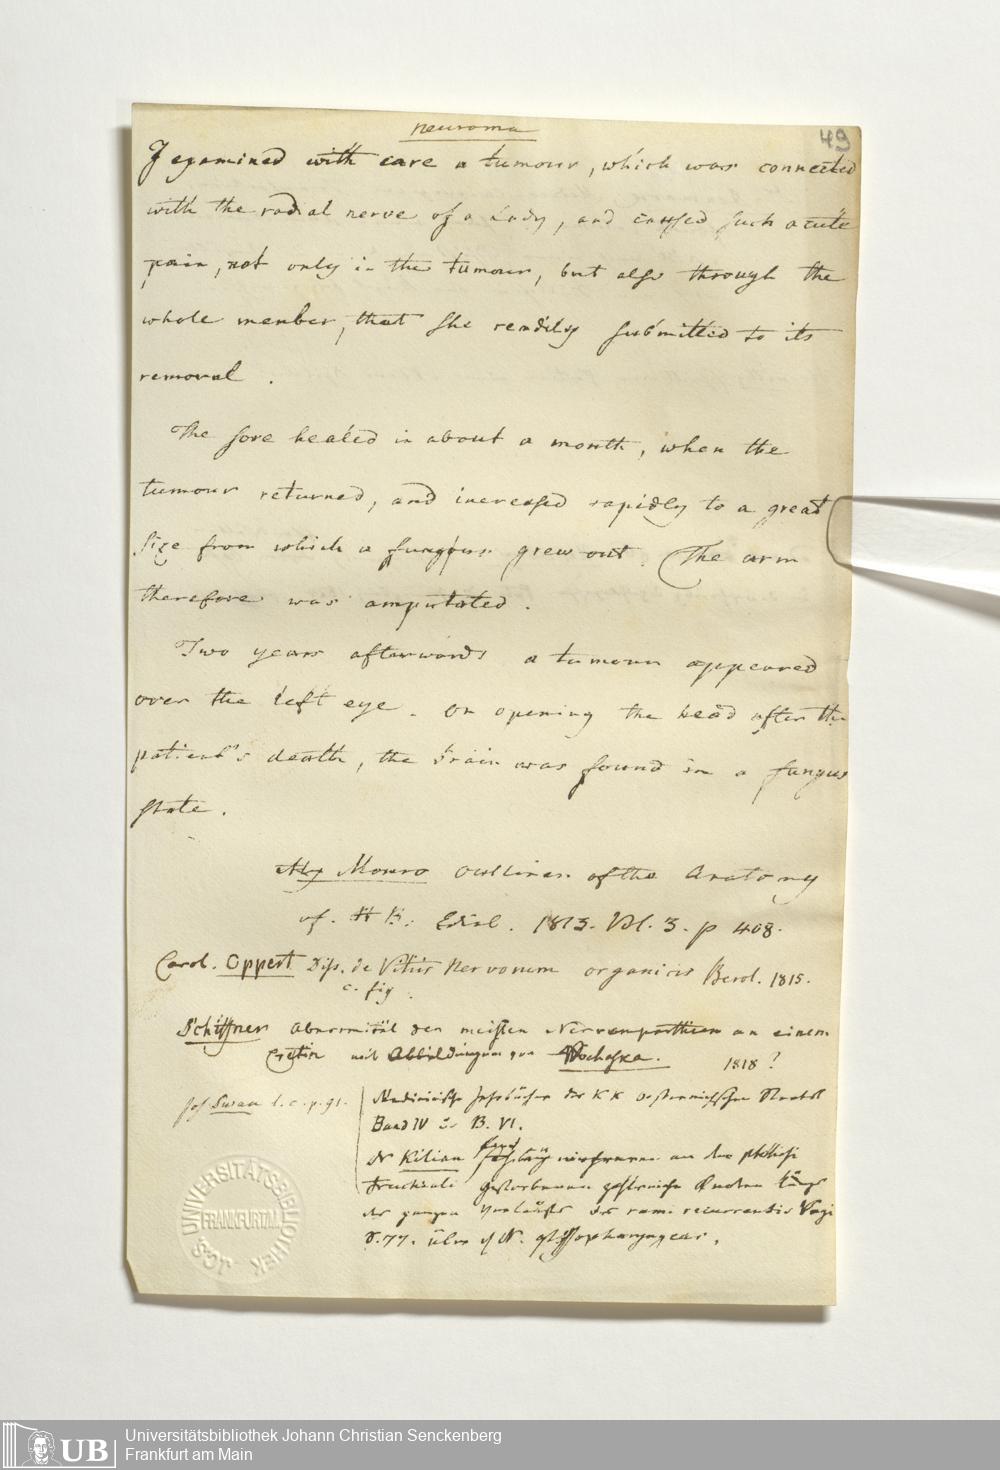 neuroma
49
I examined with care a tumour, which was connected
with the radial nerve of a Lady, and caussed such acute
pain, not only in the tumour, but also through the
whole member, that she readily submitted to its
removal.
The sore healed in about a month, when the
tumour returned, and increased rapidly to a great
size from which a fungous grew out. The arm
therefore was amputated.
Two years afterwards a tumour appeared
over the left eye. on opening the head after the
patient's death, the brain was found in a fungus
state.
Alex Monro Outlines of the Anatomy
of. H B: Edinb. 1813. Vol. 3. p 408.
Carol. Oppert Diss. de Vitiis Nervorum organicis Berol. 1815.
c. fig.
Schiffner Abnormität der meisten Nervenparthieen an einem
Cretin mit Abbildungen von Prochaska. 1818?
Jos Swan l. c. p. 91.
Medicinische Jahrbücher des KK oesterreichischen Staats
Band IV B. VI.
Dr Kilian fand an der phthisi
Gestorbenen zahlreiche Knoten längs
des ganzen Verlaufes des rami recurrentis Vagi
S. 77. über N. glossopharyngeus.
UNIVERSITÄTSBIBLIOTHEK
FRANKFURT/M.
JCS
UB
Universitätsbibliothek Johann Christian Senckenberg
Frankfurt am Main